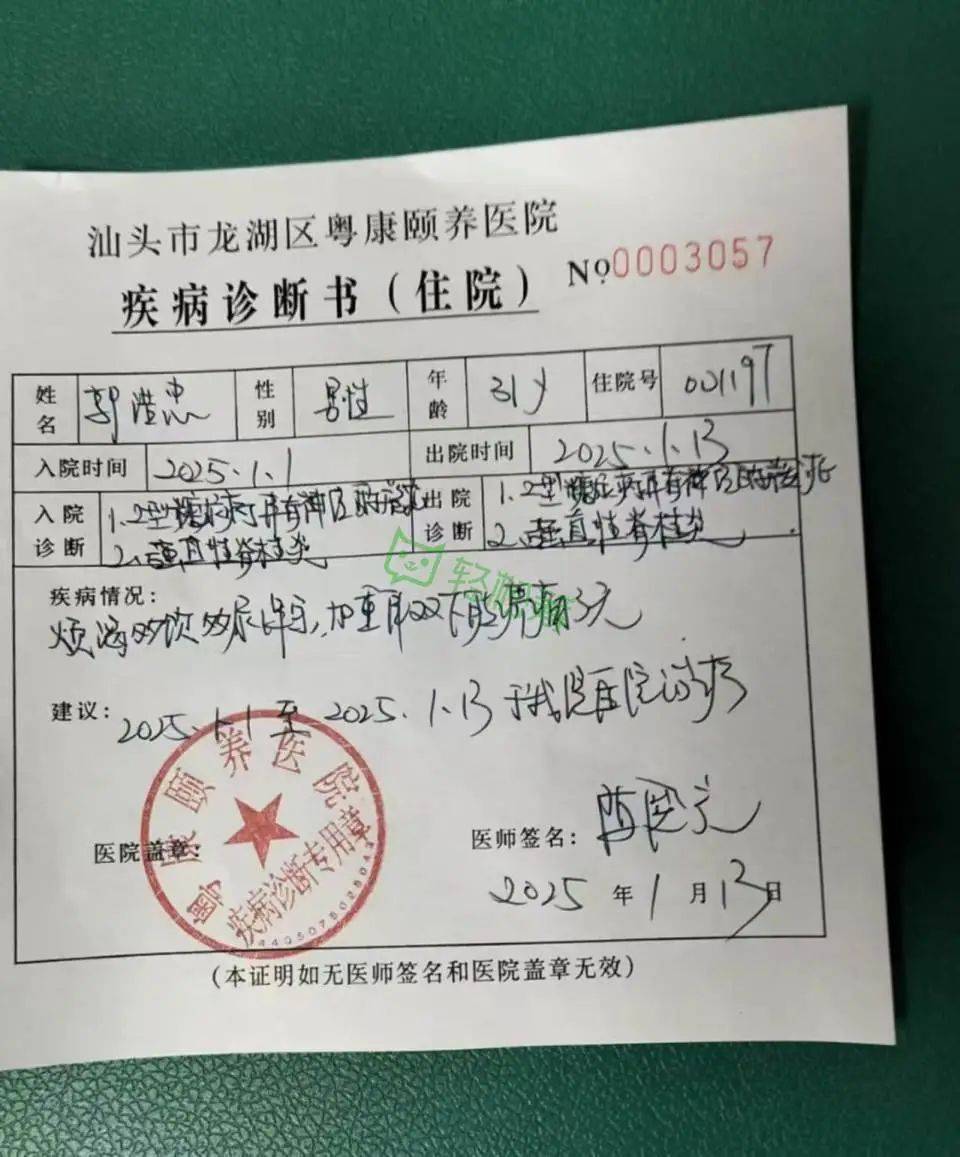 汕头市龙湖区粤康颐养医院
疾病诊断书（住院） №0003057
姓名 郭浩忠 性别 男性 年龄 31岁 住院号 001197
入院时间 2025.1.1 出院时间 2025.1.13
入院诊断 1.2型糖尿病并有神经的病变 出院诊断 1.2型糖尿病并有神经的病变
2、强直性脊柱炎 2、强直性脊柱炎
疾病情况：
烦渴多饮多尿 加重 双下肢
建议：2025.1.1至2025.1.13于我院医院治疗
粤康颐养医院
疾病诊断专用章
医院盖章：
医师签名：
2025年1月13日
（本证明如无医师签名和医院盖章无效）
轻松